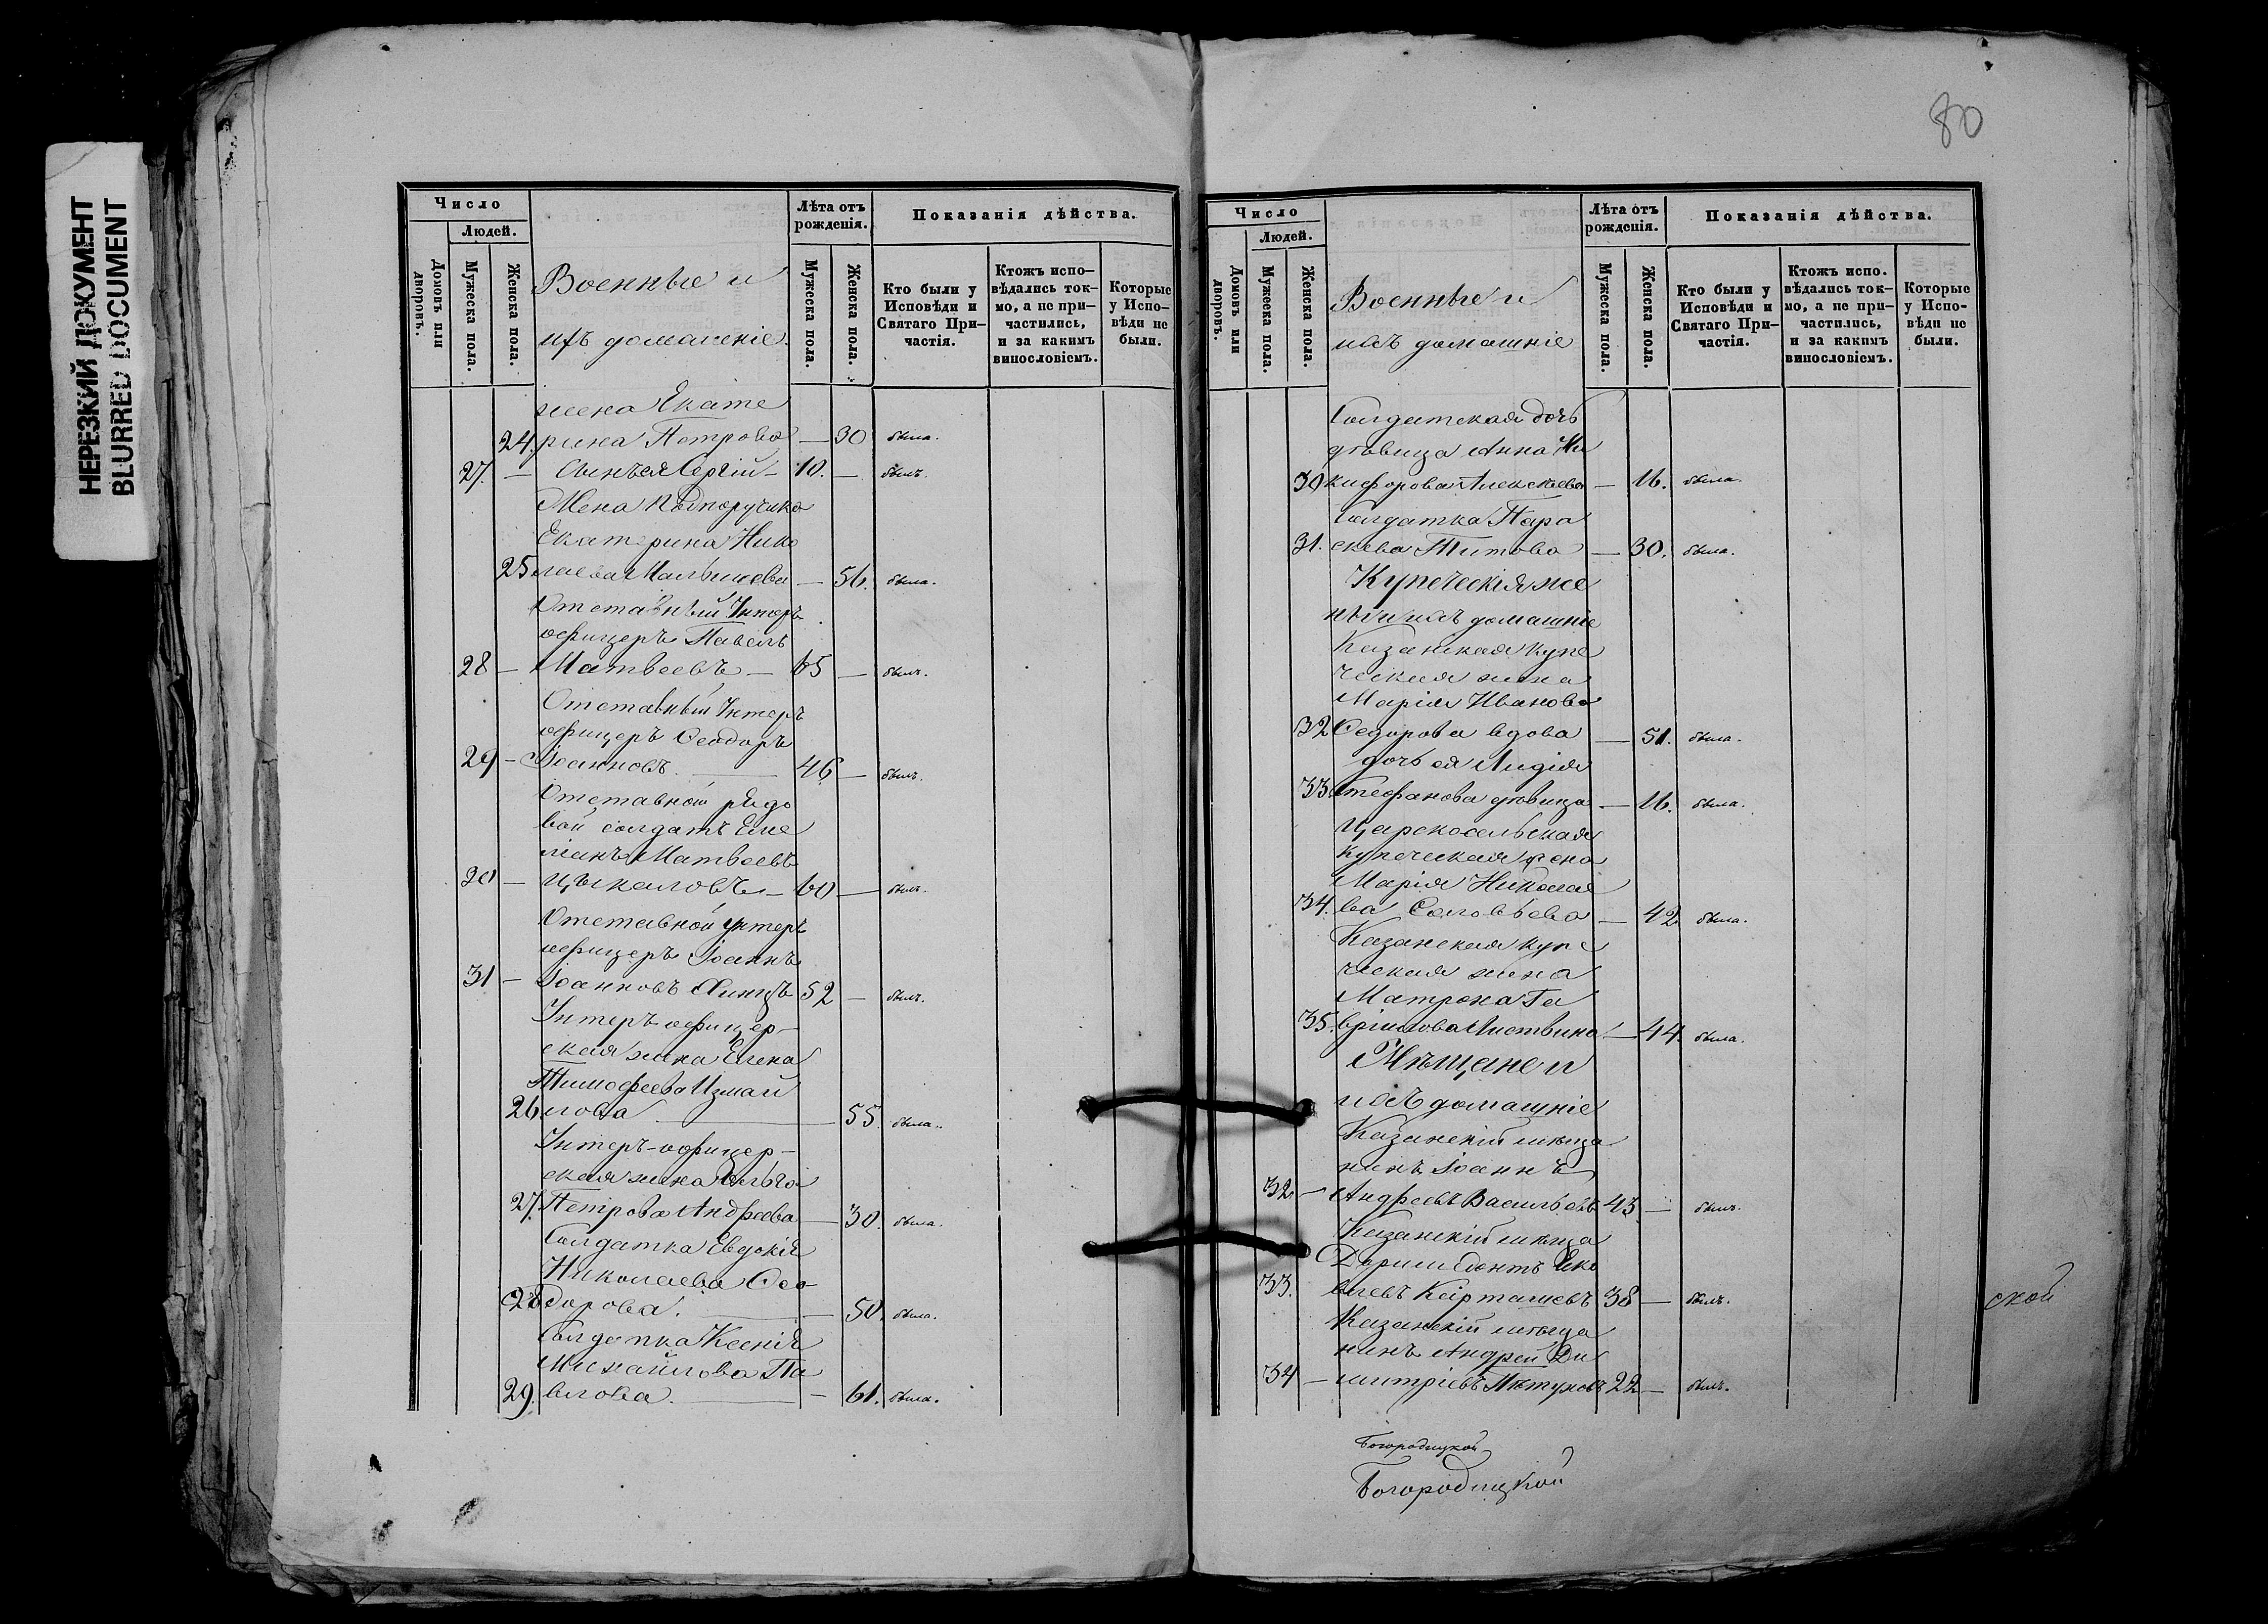 НЕРЕЗКИЙ ДОКУМЕНТ
BLURRED DOCUMENT
Число
Людей.
Домовъ или дворовъ.
Мужеска пола.
Женска пола.
Военные и
ихъ домашніе.
Лѣта отъ рожденія.
Мужеска пола.
Женска пола.
Показанія дѣйства.
Кто были у Исповѣди и Святаго При-частія.
Ктожъ испо-вѣдались ток-мо, а не при-частились, и за какимъ винословіемъ.
Которые у Испо-вѣди не были.
жена Екате
24. рина Петрова — 30 была.
27. — Сынъ ея Сергій — 10. — былъ.
Жена Подпоручика
Екатерина Нико
25 лаева Малышева — 56. была.
Отставный Унтеръ
офицеръ Павелъ
28 — Матвеевъ — 65 — былъ.
Отставный Унтеръ
офицеръ Ѳеодоръ
29 — Іоанновъ. — 46 — былъ.
Отставной рядо
вой солдатъ Еме
ліанъ Матвеевъ
30 — Цыкаловъ — 60 — былъ.
Отставной унтеръ
офицеръ Іоаннъ
31 — Іоанновъ 52 — былъ.
Унтеръ-офицер-
ская жена Елена
Тимофеева Измай
26 лова — 55. была.
Унтеръ-офицер-
ская жена Ольга
27. Петрова Андреева — 30. была.
Солдатка Евдокія
Николаева Ѳео-
28 дорова. — 50. была.
Солдатка Ксенія
Михайлова Па
29. влова. — 61. была.
80
Число
Людей.
Домовъ или дворовъ.
Мужеска пола.
Женска пола.
Военные и
ихъ домашніе
Лѣта отъ рожденія.
Мужеска пола.
Женска пола.
Показанія дѣйства.
Кто были у Исповѣди и Святаго При-частія.
Ктожъ испо.вѣдались ток-мо, а не при-частились, и за какимъ винословіемъ.
Которые у Испо-вѣди не были.
Солдатская дочь
дѣвица Анна Ни
30 кифорова Алексѣева — 16. была.
Солдатка Пара
31. скева Титова — 30. была.
Купеческія же
ны и ихъ домашніе
Казанская купе
ческая жена
Марія Иванова
32 Ѳедорова вдова — 51. была.
дочь ея Лидія
33. Стефанова дѣвица — 16. была.
Царскосельская
купеческая жена
Марія Николае
34. ва Соловьева — 42. была.
Казанская купе
ческая жена
Матрона Га
35. вріилова Листвина — 44. была.
Мѣщане и
ихъ домашніе
Казанскій мѣща
нинъ Іоаннъ
32 — Андреевъ Васильевъ 43. — былъ.
Казанскій мѣща
Яко
33. влевъ Карташевъ 38 — былъ.
Казанскій мѣща
нинъ Андрей Ди
34 — митріевъ Пѣтуховъ 22 — былъ.
ской
Богородицкой
Богородицкой